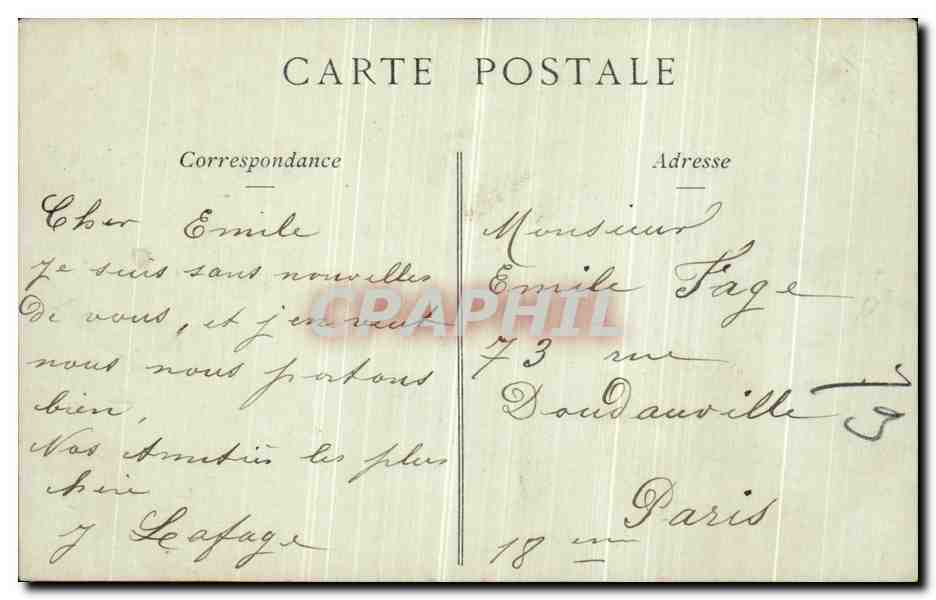 CARTE POSTALE
Correspondance
Cher Emile
Je suis sans nouvelles
De vous, et j'en veut
nous nous portons
bien,
Nos Amitiés les plus
J Lafage
Adresse
Monsieur
Emile Fage
73 rue
Doudauville
Paris
18 em
CPAPHIL